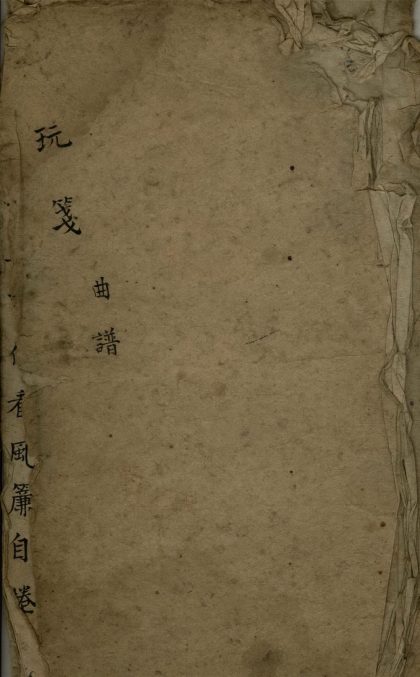 玩箋
曲譜
看風簾自卷